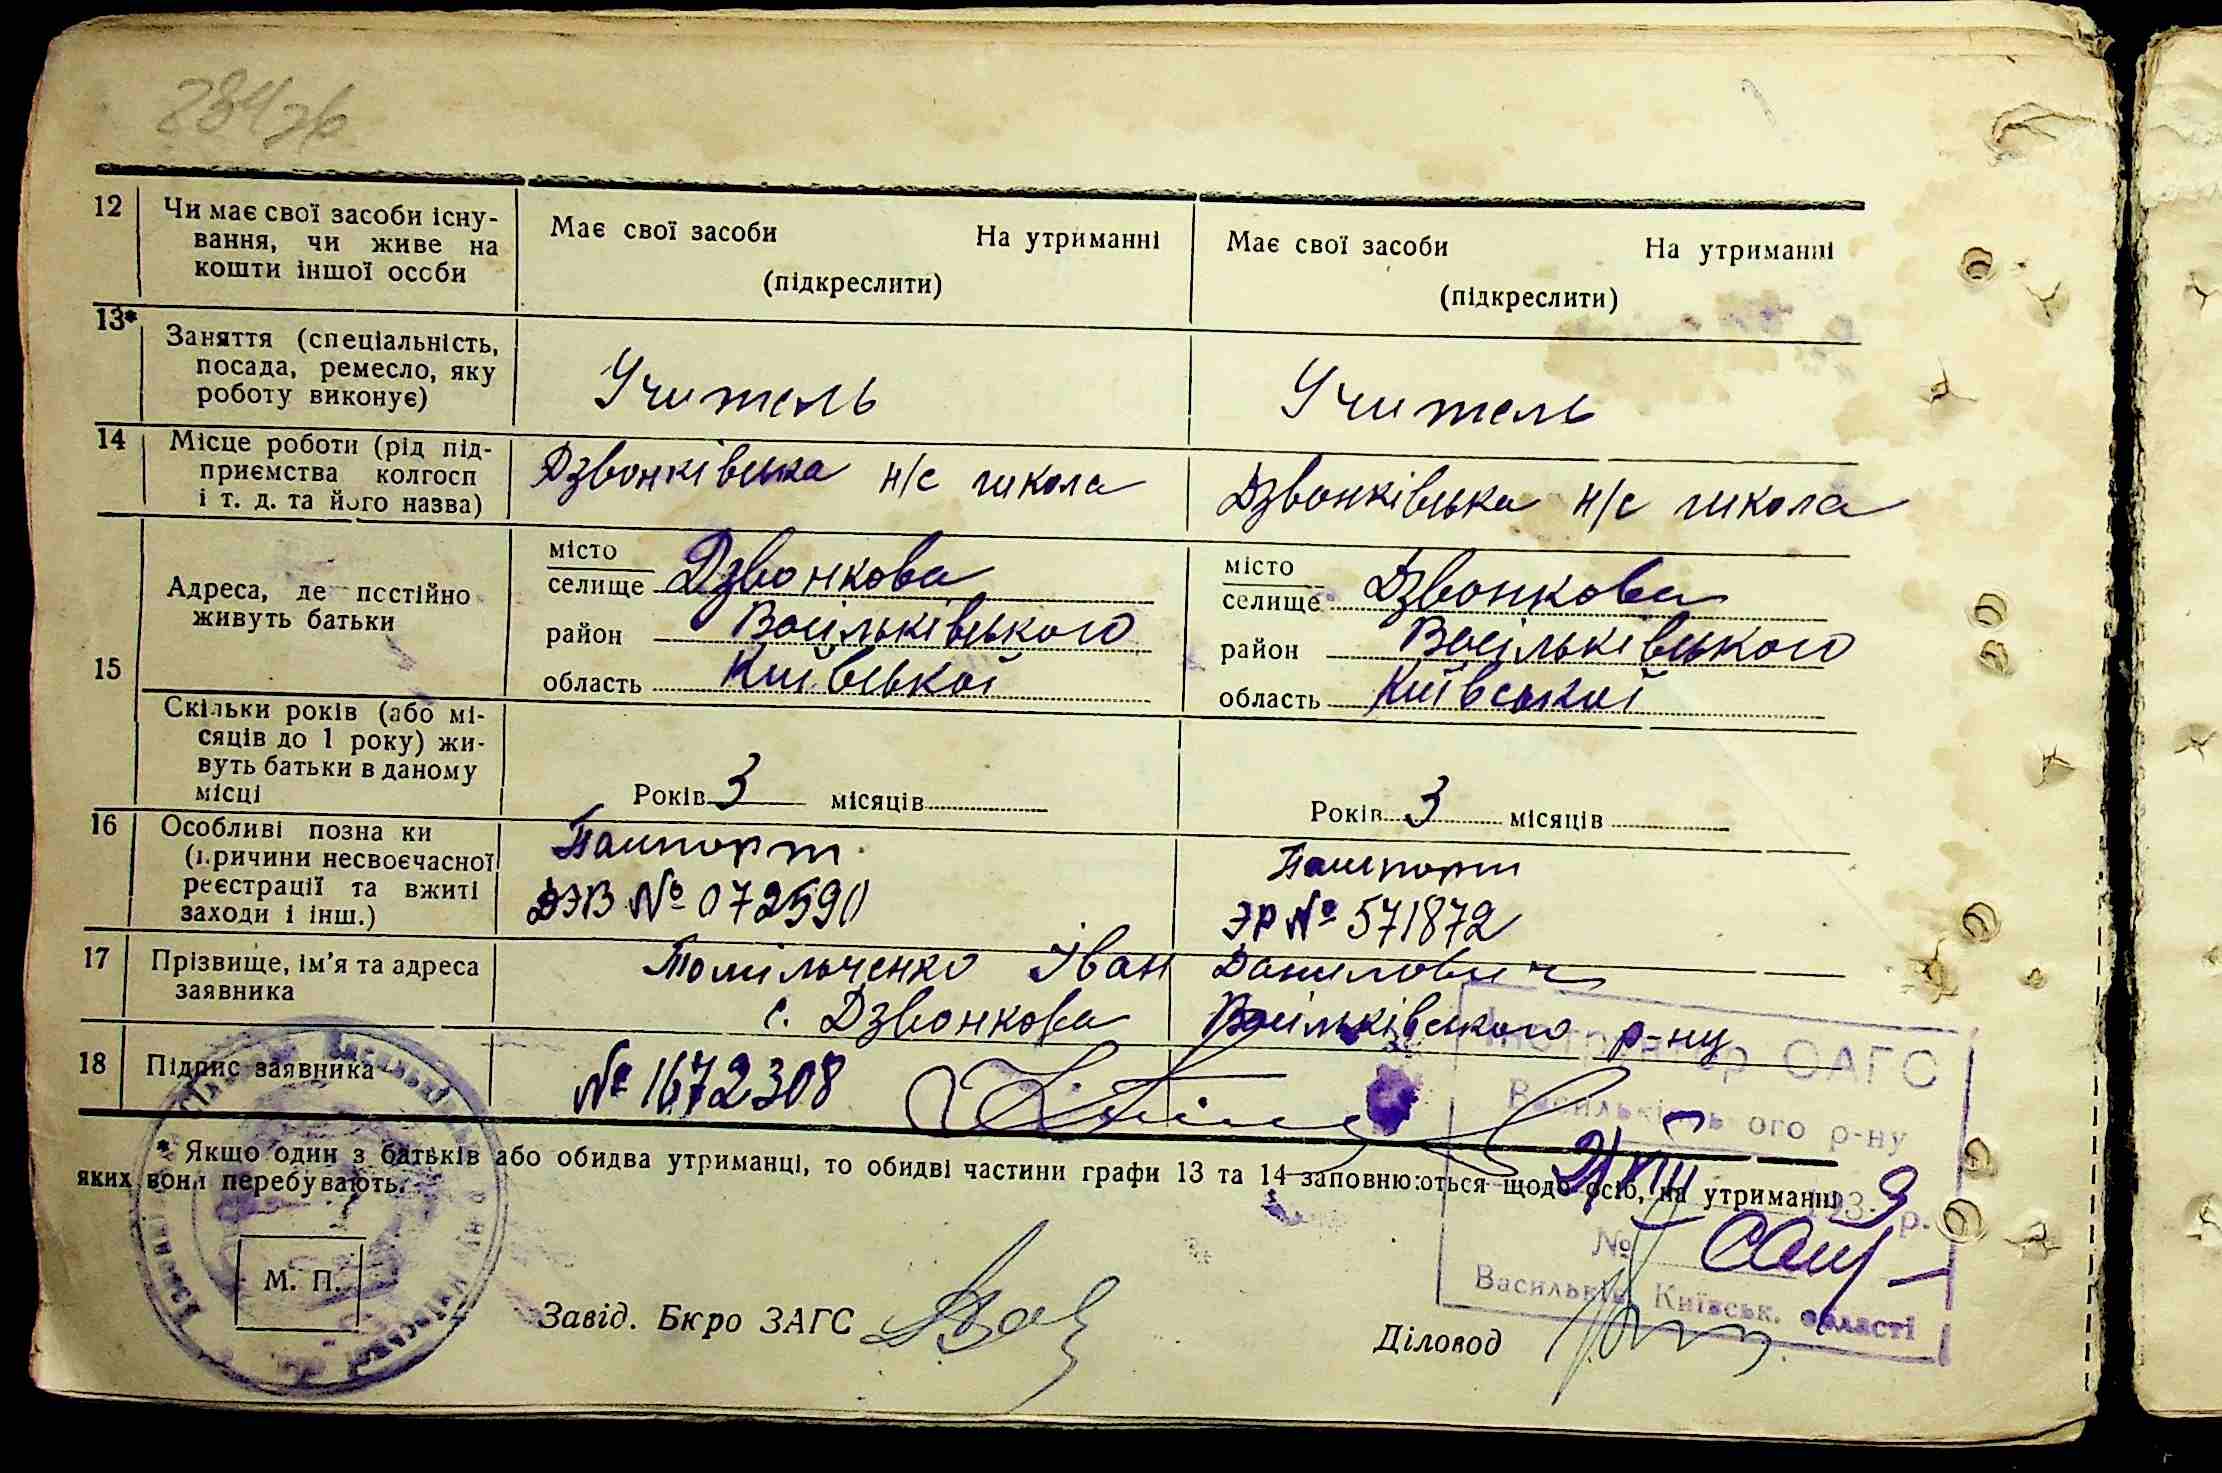 284зв
12 Чи має свої засоби існу-
вання, чи живе на
кошти іншої особи
Має свої засоби На утриманні
(підкреслити)
Має свої засоби На утриманні
(підкреслити)
13* Заняття (спеціальність,
посада, ремесло, яку
роботу виконує)
Учитель
Учитель
14 Місце роботи (рід під-
приємства колгосп
і т. д. та його назва)
Дзвонківська н/с школа
Дзвонківська н/с школа
15 Адреса, де постійно
живуть батьки
місто
селище Дзвонкова
район Васільківського
область Київської
місто
селище Дзвонкова
район Васільківського
область Київської
Скільки років (або мі-
сяців до 1 року) жи-
вуть батьки в даному
місці
Років 3 місяців
Років 3 місяців
16 Особливі позна ки
(причини несвоєчасної
реєстрації та вжиті
заходи і інш.)
Пашпорт
ДЭВ № 072590
Пашпорт
ЭР № 571872
17 Прізвище, ім'я та адреса
заявника
Томільченко Іван Данилович
с. Дзвонкова Васільківського р-ну
18 Підпис заявника
№ 1672308
* Якщо один з батьків або обидва утриманці, то обидві частини графи 13 та 14 заповнюються щодо осіб, на утриманні
яких вони перебувають.
М. П.
Завід. Бюро ЗАГС
Діловод
ОАГС
Васильківського р-ну
21/VIII 1939 р.
№
Васильків Київськ. області